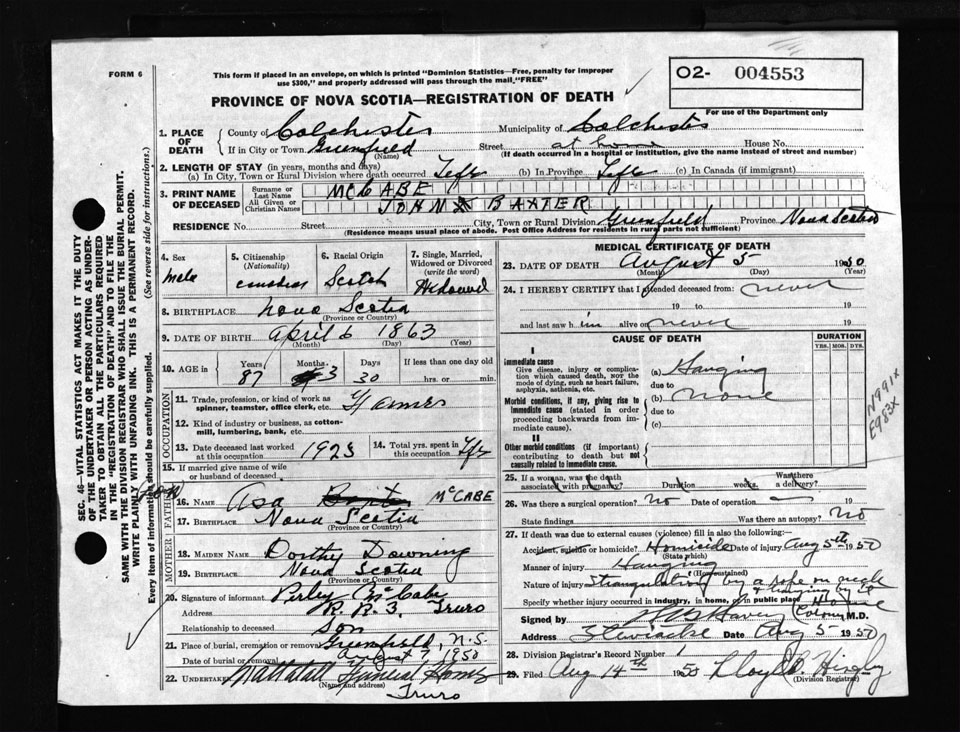 FORM 6
This form if placed in an envelope, on which is printed "Dominion Statistics—Free, penalty for improper
use $300," and properly addressed will pass through the mail, "FREE"
O2- 004553
For use of the Department only
PROVINCE OF NOVA SCOTIA—REGISTRATION OF DEATH
1. PLACE OF DEATH
County of Colchester Municipality of Colchester
If in City or Town Greenfield (Name) Street at home House No.
(If death occurred in a hospital or institution, give the name instead of street and number)
2. LENGTH OF STAY (in years, months and days)
(a) In City, Town or Rural Division where death occurred Life (b) In Province Life (c) In Canada (if immigrant)
3. PRINT NAME OF DECEASED
Surname or Last Name MCCABE
All Given or Christian Names JOHN BAXTER
RESIDENCE No. Street City, Town or Rural Division Greenfield Province Nova Scotia
(Residence means usual place of abode. Post Office Address for residents in rural parts not sufficient)
4. Sex
male
5. Citizenship (Nationality)
6. Racial Origin
Scotch
7. Single, Married, Widowed or Divorced (write the word)
Widowed
8. BIRTHPLACE Nova Scotia
(Province or Country)
9. DATE OF BIRTH April 6 1863
(Month) (Day) (Year)
10. AGE in Years Months Days If less than one day old
87 3 30 hrs. or min.
OCCUPATION
11. Trade, profession, or kind of work as spinner, teamster, office clerk, etc. Farmer
12. Kind of industry or business, as cotton-mill, lumbering, bank, etc.
13. Date deceased last worked at this occupation 1923
14. Total yrs. spent in this occupation Life
15. If married give name of wife or husband of deceased
FATHER
16. NAME Asa McCABE
17. BIRTHPLACE Nova Scotia
(Province or Country)
MOTHER
18. MAIDEN NAME Dorthy Downing
19. BIRTHPLACE Nova Scotia
(Province or Country)
20. Signature of informant Perley McCabe
Address R.R. 3, Truro
Relationship to deceased Son
21. Place of burial, cremation or removal Greenfield, N.S.
Date of burial or removal August 7, 1950
22. UNDERTAKER Funeral Home
(Name and address)
Truro
MEDICAL CERTIFICATE OF DEATH
23. DATE OF DEATH August 5 1950
(Month) (Day) (Year)
24. I HEREBY CERTIFY that I attended deceased from: never
19 to 19
and last saw him alive on never 19
CAUSE OF DEATH
DURATION
YRS. MOS. DYS.
I
Immediate cause
Give disease, injury or complication which caused death, not the mode of dying, such as heart failure, asphyxia, asthenia, etc.
(a) Hanging
due to
Morbid conditions, if any, giving rise to immediate cause (stated in order proceeding backwards from immediate cause).
(b) none
due to
(c)
II
Other morbid conditions (if important) contributing to death but not causally related to immediate cause.
N991X
E983X
25. If a woman, was the death associated with pregnancy? Duration weeks. Was there a delivery?
26. Was there a surgical operation? No Date of operation 19
State findings Was there an autopsy? No
27. If death was due to external causes (violence) fill in also the following:
Accident, suicide or homicide? Homicide Date of injury Aug 5th 1950
(State which)
Manner of injury Hanging
(How sustained)
Nature of injury Strangulation by a rope on neck
& hanging by it
Specify whether injury occurred in industry, in home, or in public place Home
Signed by M.D.
Address Stewiacke Date Aug 5 1950
28. Division Registrar's Record Number 1
29. Filed Aug 14th 1950 Lloyd Hingley
(Division Registrar)
SEC. 46—VITAL STATISTICS ACT MAKES IT THE DUTY
OF THE UNDERTAKER OR PERSON ACTING AS UNDER-
TAKER TO OBTAIN ALL THE PARTICULARS REQUIRED
IN THE "REGISTRATION OF DEATH" AND TO FILE THE
SAME WITH THE DIVISION REGISTRAR WHO SHALL ISSUE THE BURIAL PERMIT.
WRITE PLAINLY WITH UNFADING INK. THIS IS A PERMANENT RECORD.
Every item of information should be carefully supplied. (See reverse side for instructions.)